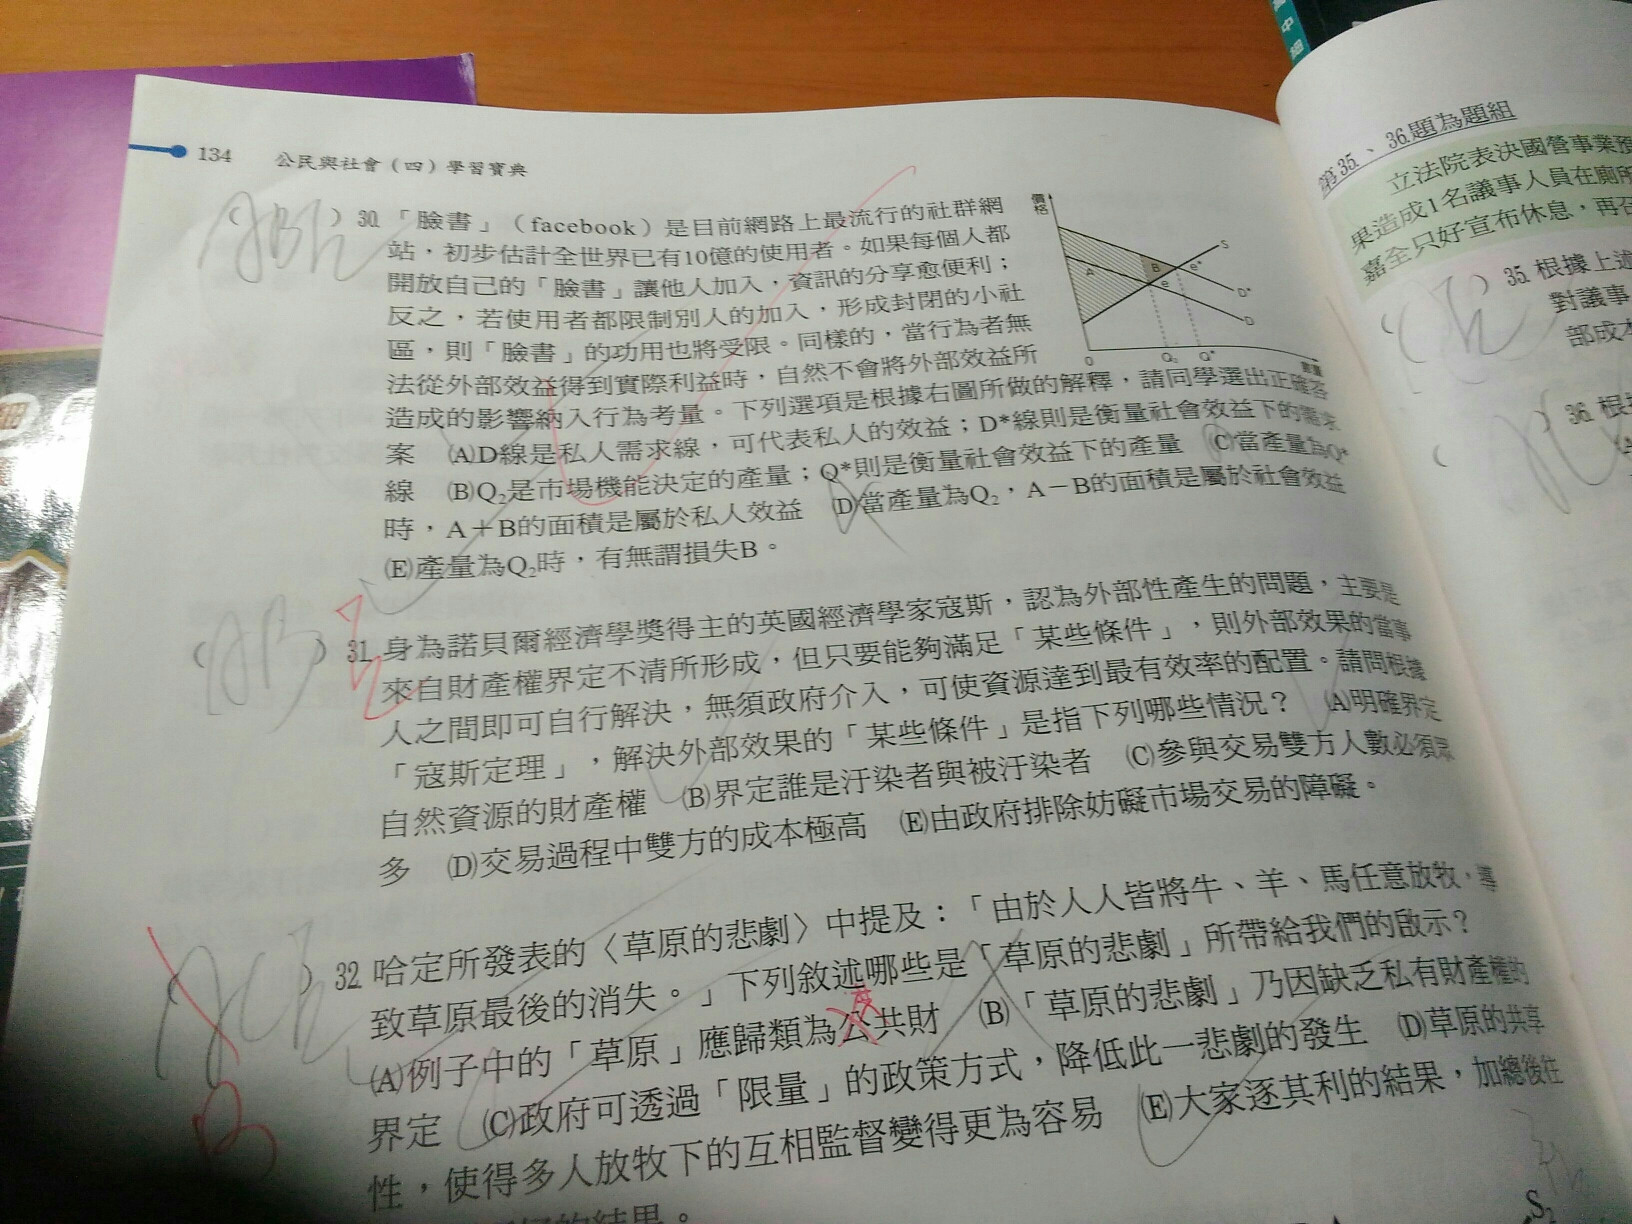 134 公民與社會（四）學習寶典
( ABE ) 30 「臉書」（facebook）是目前網路上最流行的社群網
站，初步估計全世界已有10億的使用者。如果每個人都
開放自己的「臉書」讓他人加入，資訊的分享愈便利；
反之，若使用者都限制別人的加入，形成封閉的小社
區，則「臉書」的功用也將受限。同樣的，當行為者無
法從外部效益得到實際利益時，自然不會將外部效益所
造成的影響納入行為考量。下列選項是根據右圖所做的解釋，請同學選出正確答
案 (A)D線是私人需求線，可代表私人的效益；D*線則是衡量社會效益下的需求
線 (B)Q₂是市場機能決定的產量；Q*則是衡量社會效益下的產量 (C)當產量為Q*
時，A＋B的面積是屬於私人效益 (D)當產量為Q₂，A－B的面積是屬於社會效益
(E)產量為Q₂時，有無謂損失B。
價格
S
A
B
e*
e
D*
D
0
Q₂
Q*
( AB ) 31 身為諾貝爾經濟學獎得主的英國經濟學家寇斯，認為外部性產生的問題，主要是
來自財產權界定不清所形成，但只要能夠滿足「某些條件」，則外部效果的當事
人之間即可自行解決，無須政府介入，可使資源達到最有效率的配置。請問根據
「寇斯定理」，解決外部效果的「某些條件」是指下列哪些情況？ (A)明確界定
自然資源的財產權 (B)界定誰是汙染者與被汙染者 (C)參與交易雙方人數必須眾
多 (D)交易過程中雙方的成本極高 (E)由政府排除妨礙市場交易的障礙。
E
( ACE ) 32 哈定所發表的〈草原的悲劇〉中提及：「由於人人皆將牛、羊、馬任意放牧，導
致草原最後的消失。」下列敘述哪些是「草原的悲劇」所帶給我們的啟示？
(A)例子中的「草原」應歸類為公共財 (B)「草原的悲劇」乃因缺乏私有財產權的
界定 (C)政府可透過「限量」的政策方式，降低此一悲劇的發生 (D)草原的共享
性，使得多人放牧下的互相監督變得更為容易 (E)大家逐其利的結果，加總後往
的結果。
B
S₂
第35、36題為題組
立法院表決國營事業預
果造成1名議事人員在廁所
嘉全只好宣布休息，再召
35 根據上述
對議事
部成本
36 根據